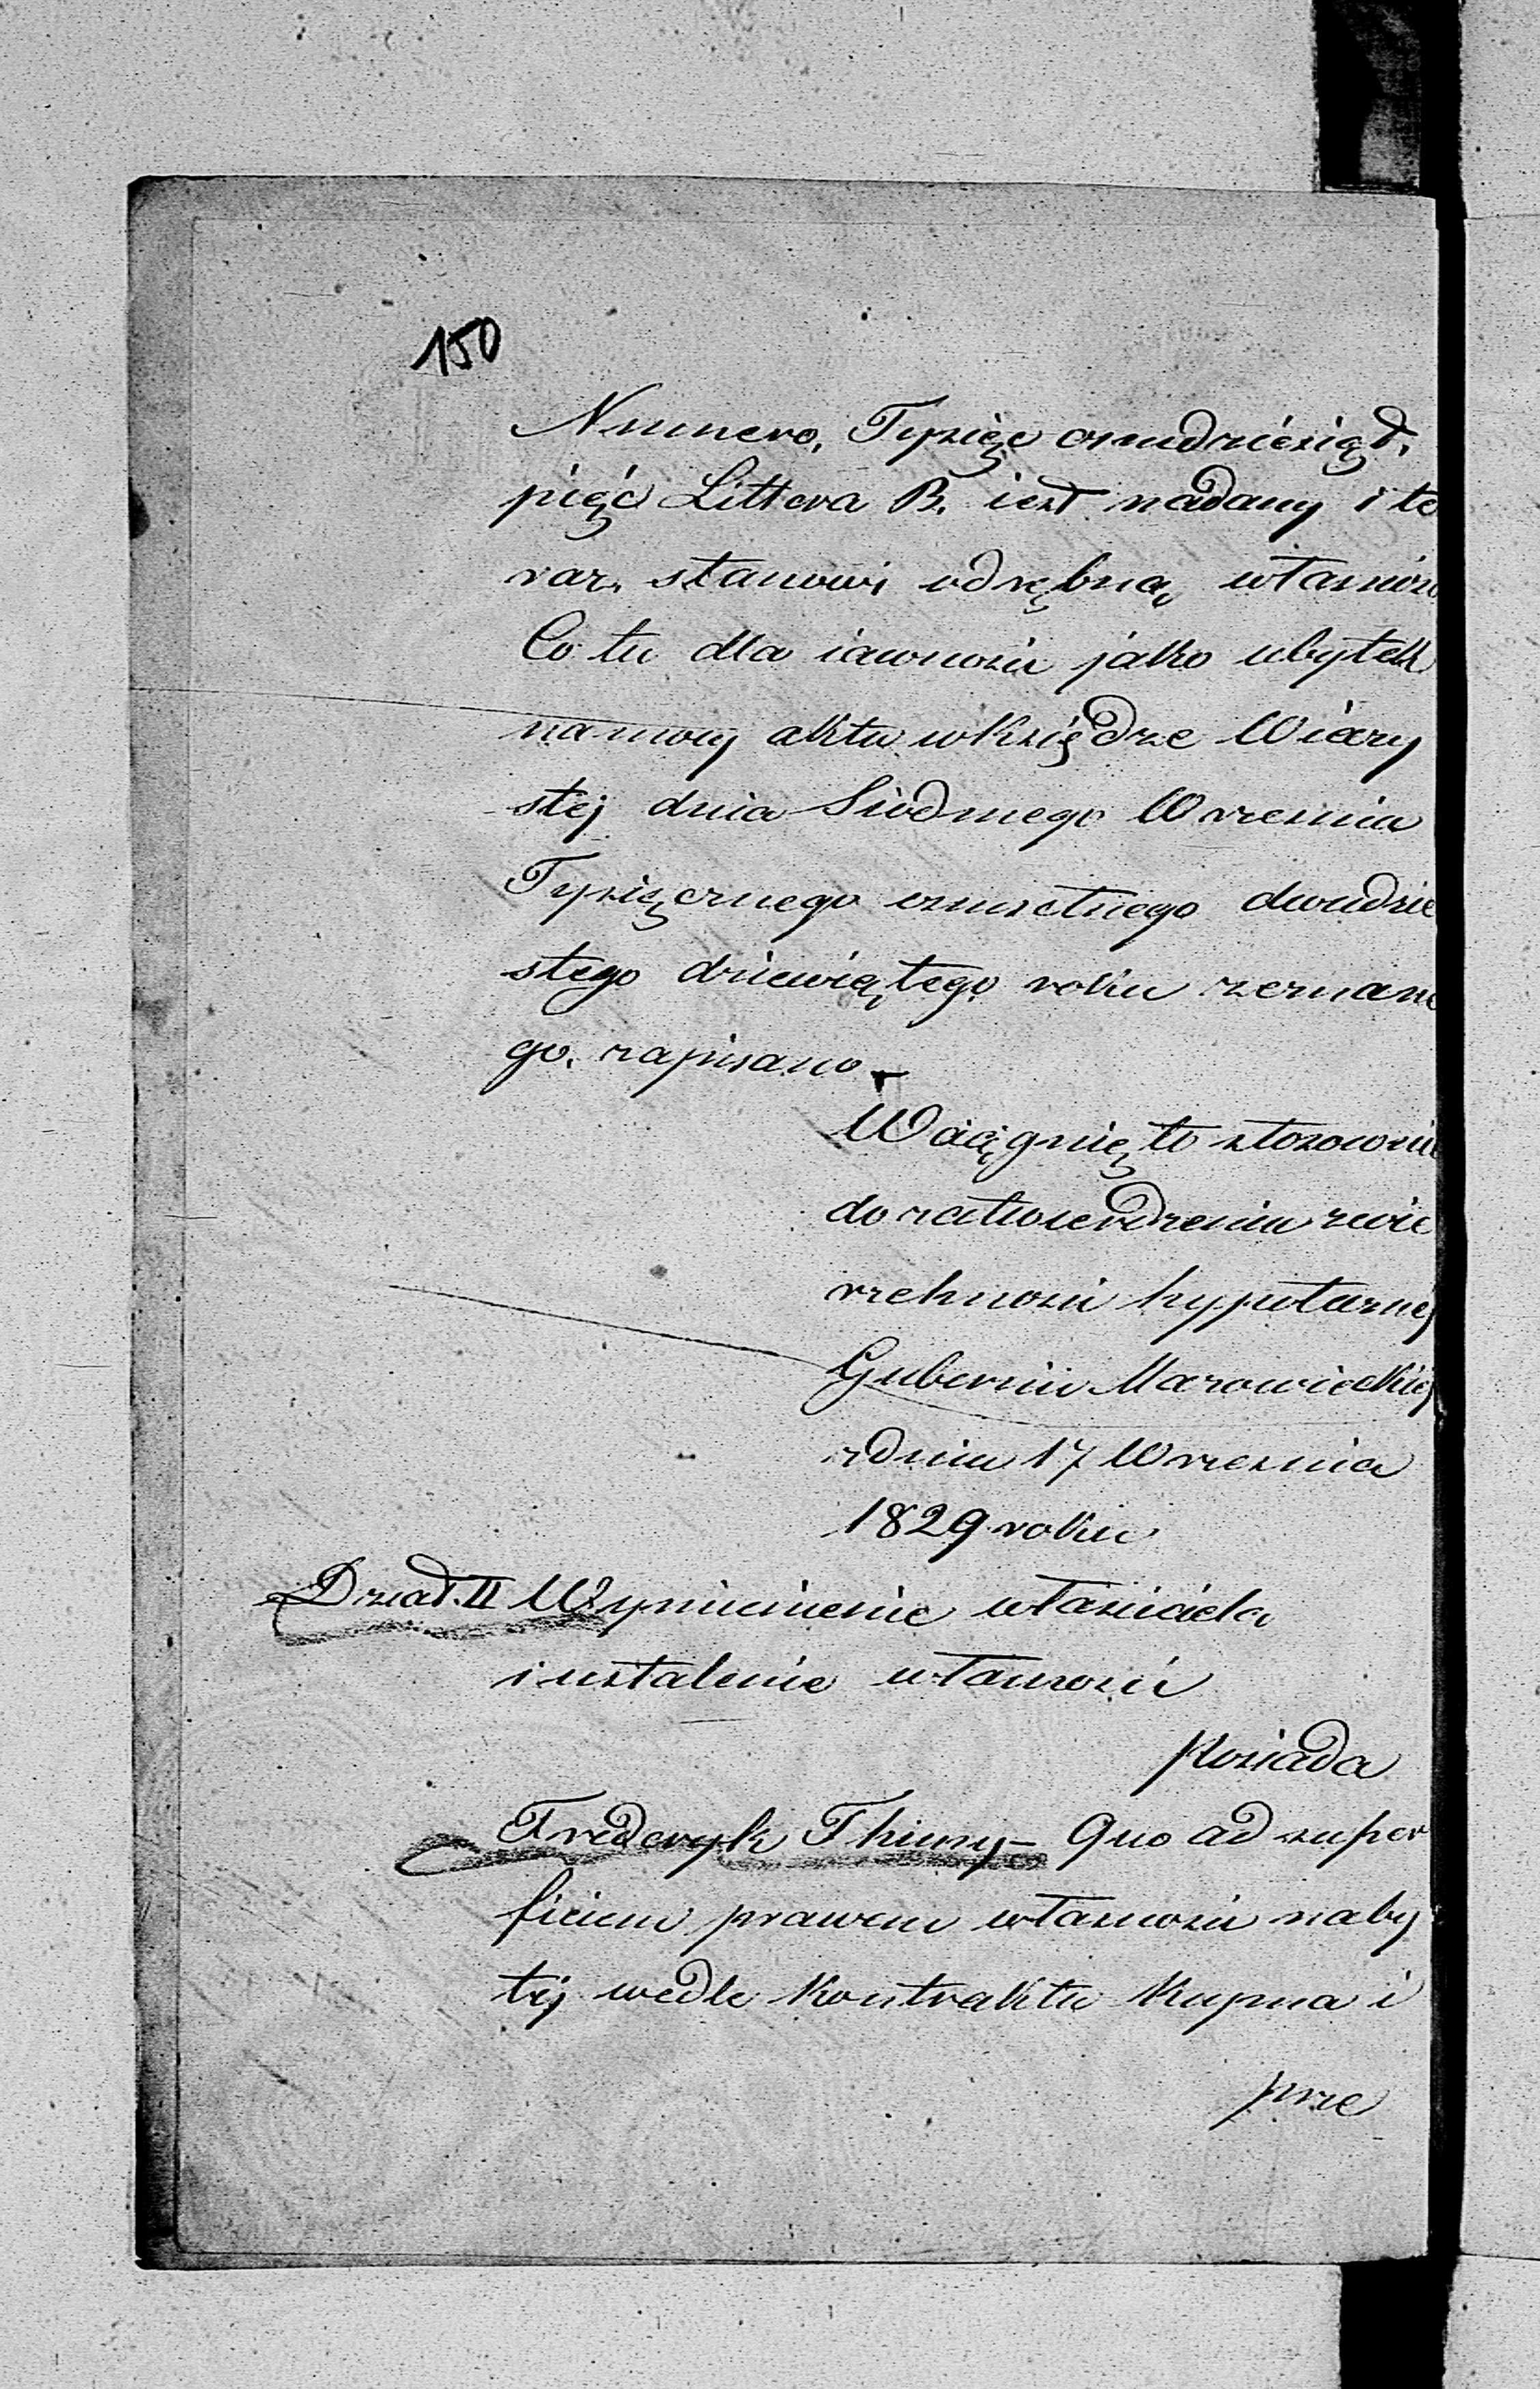 150
Numero, Tysiąc osmdziesiąt,
pięć Littera B. iest nadany i te
raz, stanowi odrębną, własność
Co tu dla iawności jako ubytek
na mocy aktu w Księdze Wieczy
stej dnia Siódmego Września
Tysiącznego osmsetnego dwudzie
stego dziewiątego roku zeznane
go, zapisano.
Wciągnięto stosownie
do zatwierdzenia zwie
rzchności hypotecznej
Gubernii Mazowieckiej
z dnia 17 Września
1829 roku
Dział. II Wymienienie właściciela,
i ustalenie własności
Posiada
Frederyk Thimy - Quo ad super
ficiem prawem własności naby
tej wedle Kontraktu Kupna i
prze